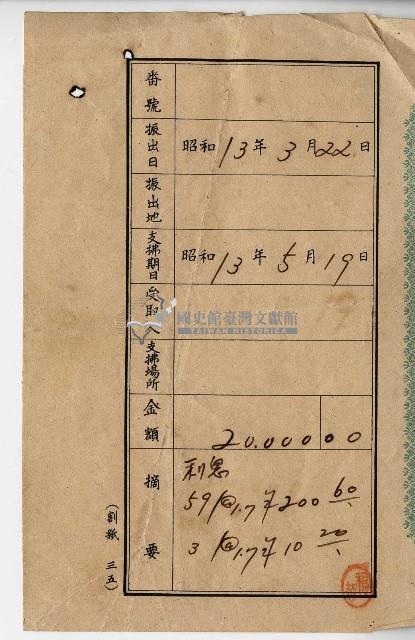 番號
振出日 昭和13年3月22日
振出地
支拂期日 昭和13年5月19日
受取人
國史館臺灣文獻館
TAIWAN HISTORICA
支拂場所
金額 20.00000
摘要 利息
59/@1.7 200 60
3 @1.7 10 20
(割紙 三五)